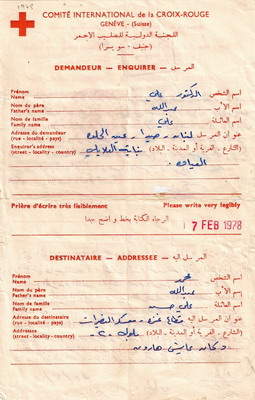 COMITÉ INTERNATIONAL de la CROIX-ROUGE
GENÈVE - (Suisse)
اللجنة الدولية للصليب الاحمر
(جنيف - سويسرا)
DEMANDEUR — ENQUIRER — المرسل
Prénom
Name
الدكتور علي
اسم الشخص
Nom du père
Father's name
عبدالله
اسم الأب
Nom de famille
Family name
علي
اسم العائلة
Adresse du demandeur
(rue - localité - pays)
لبنان - صيدا - عين الحلوة
عنوان المرسل
Enquirer's address
(street - locality - country)
بناية
(الشارع - القرية أو المدينة - البلاد)
Prière d'écrire très lisiblement
Please write very legibly
الرجاء الكتابة بخط واضح جدا
7 FEB 1978
DESTINATAIRE — ADDRESSEE — المرسل اليه
Prénom
Name
محمد
اسم الشخص
Nom du père
Father's name
عبدالله
اسم الأب
Nom de famille
Family name
علي حسن
اسم العائلة
Adresse de destinataire
(rue - localité - pays)
قطاع غزة - معسكر النصيرات
عنوان المرسل اليه
Addressee
(street - locality - country)
بلوك -
(الشارع - القرية أو المدينة - البلاد)
دكان عايش هارون